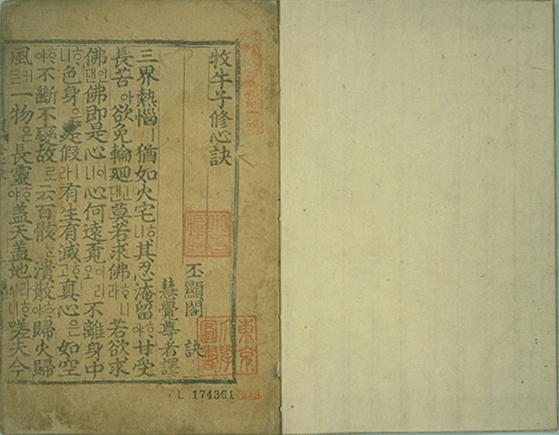 牧牛子修心訣
丕顯閣 訣
慧覺尊者譯
三界熱惱ㅣ猶如火宅ᄒᆞ니其忍淹留ᄒᆞ야甘受
長苦아欲免輪廻댄莫若求佛ᄒᆞ니라若欲求
佛인댄佛即是心이니心何遠覓이리오不離身中
ᄒᆞ니라色身ᄋᆞᆫ是假ㅣ라有生有滅ᄒᆞ고真心은如空
ᄒᆞ야不斷不變故로云百骸ᄂᆞᆫ潰散ᄒᆞ야歸火歸
風一物은長靈ᄒᆞ야盖天盖地라ᄒᆞ시니라嗟夫今
L 174361